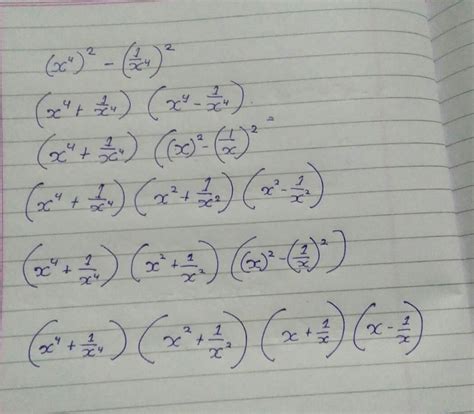 (x⁴)² - (1/x⁴)²
(x⁴ + 1/x⁴) (x⁴ - 1/x⁴).
(x⁴ + 1/x⁴) ((x)² - (1/x)² =
(x⁴ + 1/x⁴) (x² + 1/x²) (x² - 1/x²)
(x⁴ + 1/x⁴) (x² + 1/x²) ((x)² - (1/x)²)
(x⁴ + 1/x⁴) (x² + 1/x²) (x + 1/x) (x - 1/x)